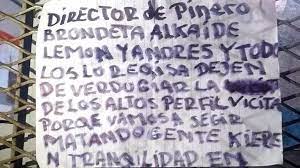 DIRECTOR de PINERO
BRONDETA ALKAIDE
LEMON Y ANDRES Y TODO
LOS LO REQISA DEJEN
DE VERDUGIAR LA
DE LOS ALTOS PERFIL VICITA
PORQE VAMOS A SEGIR
MATANDO GENTE KIEREN
N TRANQILIDAD EN